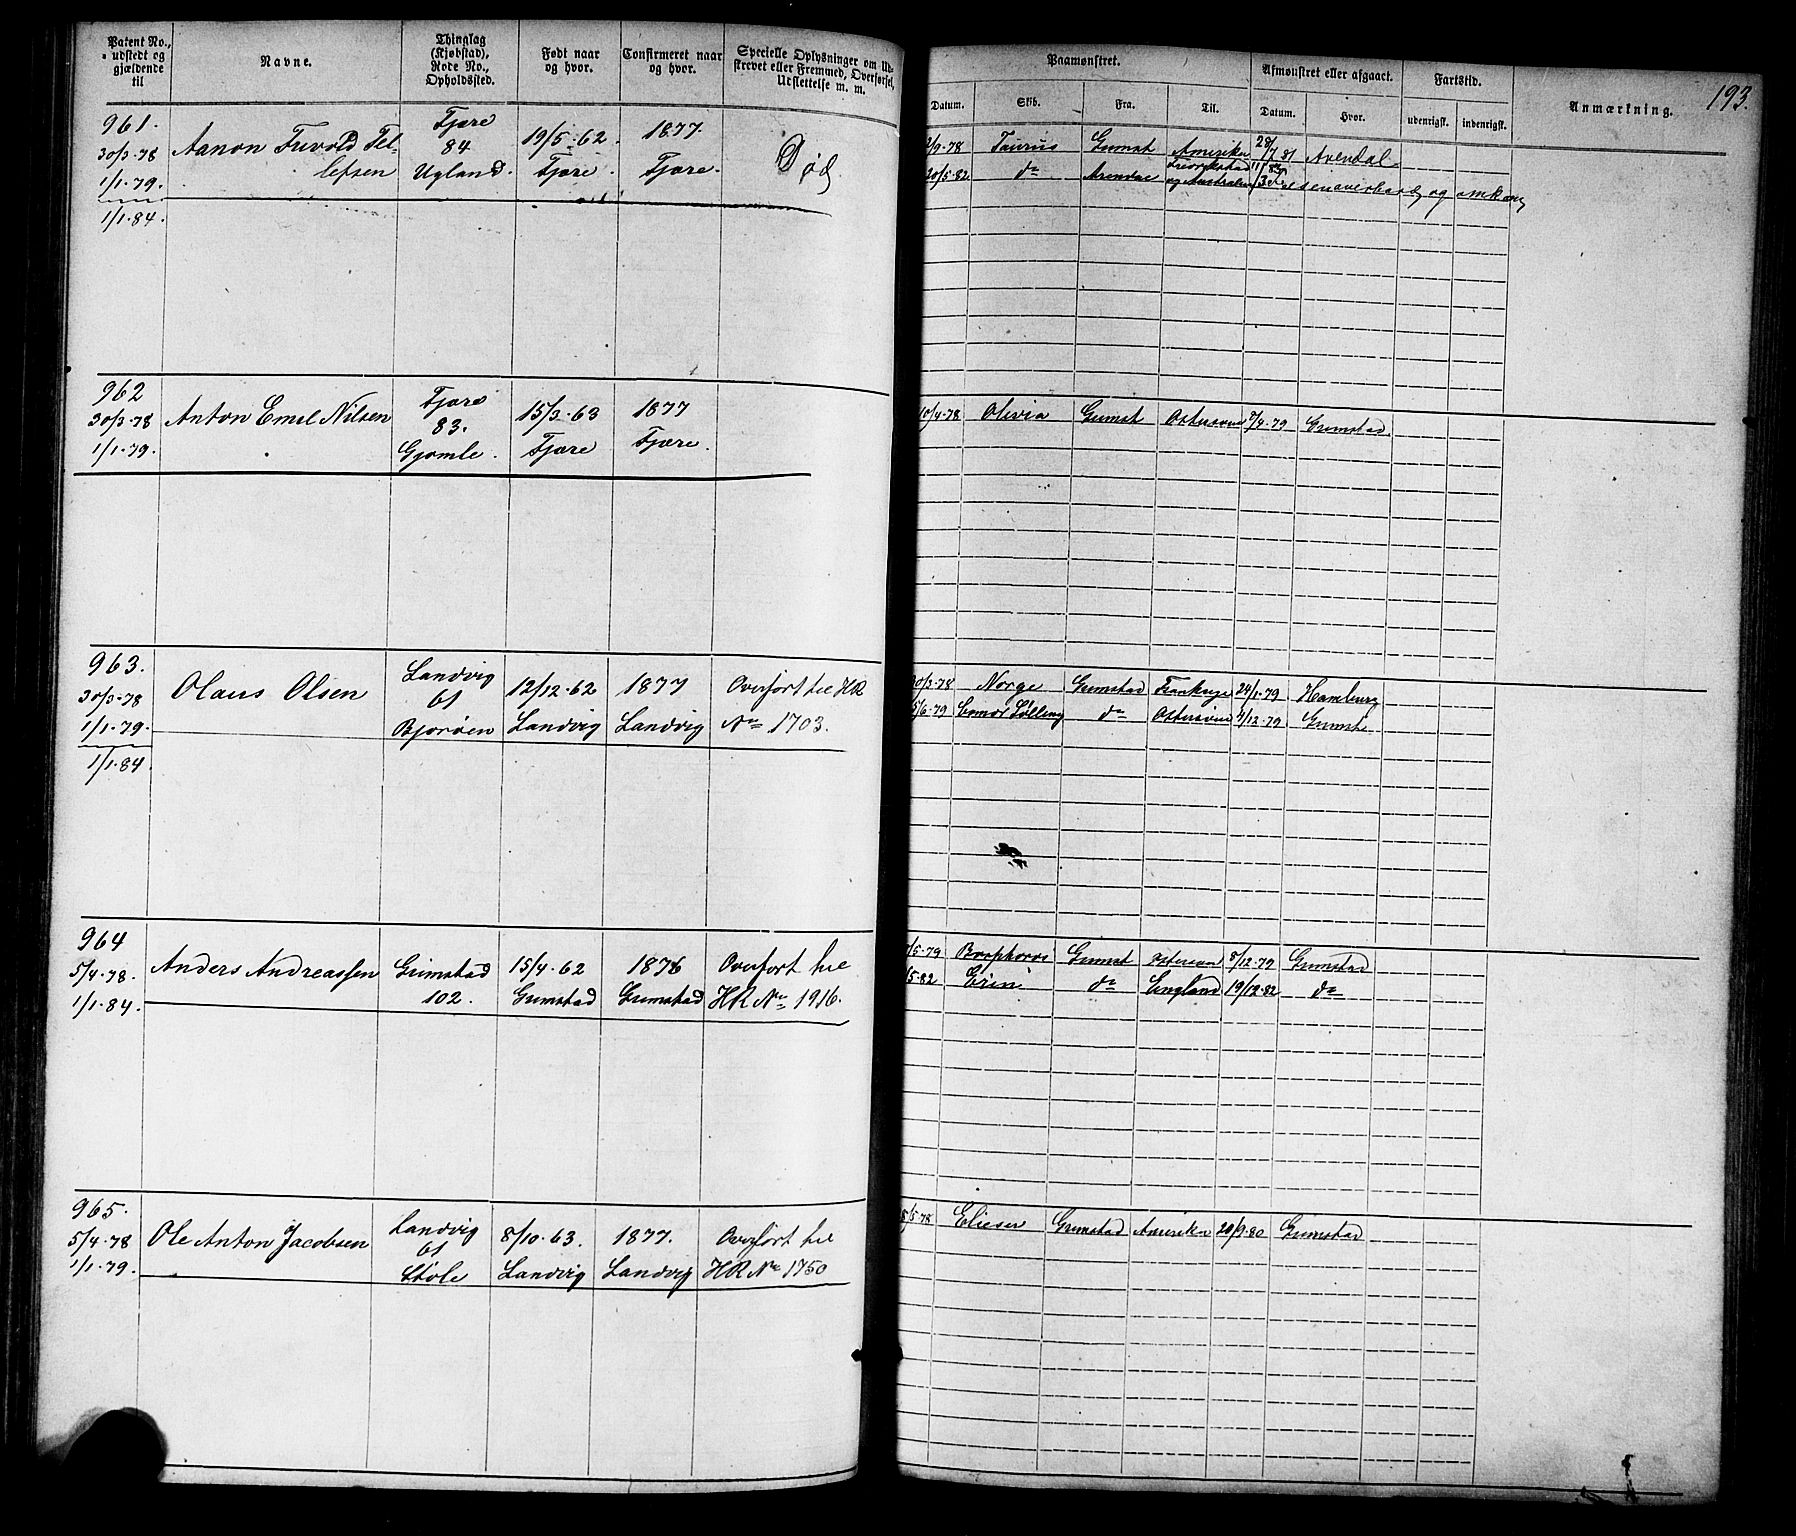 193.
Patent No., udstedt og gjældende til
Navne.
Thinglag (Kjøbstad), Rode No., Opholdssted.
Født naar og hvor.
Confirmeret naar og hvor.
Specielle Oplysninger om Udskrevet eller Fremmed, Overførsel, Udslettelse m. m.
Paamønstret.
Afmønstret eller afgaaet.
Fartstid.
Anmærkning.
Datum.
Skib.
Fra.
Til.
Datum.
Hvor.
udenrigsk.
indenrigsk.
961.
30/3-78
1/1.79.
1/1.84.
Aanon Tel-
lefsen
Fjære
84
Ugland
19/5-62
Fjære
1877.
Fjære.
Død
2/9-78 Taurus Grmst Amerika 28/7 81 Arendal
30/5-82 do Arendal Fredrikstad
og Australien
og omkom
962
30/3-78
1/1.79.
Anton Emil Nilsen
Fjære
83.
Gjømle.
15/3-63
Fjære
1877
Fjære.
10/4-78 Olivia Grmst Østersøen 7/4-79 Grimstad
963.
30/3-78
1/1.79.
1/1.84
Olaus Olsen
Landvig
61
Bjorøen
12/12-62
Landvig
1877
Landvig
Overført til HR
No 1703.
30/3-78 Norge Grimstad Frankrige 24/1-79 Hamburg
5/6-79 do Østersøen 4/12-79 Grimst
964
5/4-78.
1/1.84.
Anders Andreassen
Grimstad
102.
15/4-62
Grimstad
1876
Grimstad
Overført til
HR No 1916.
/5-79 Grmst Østersøen 8/12-79 Grimstad
/5-82 Erin do England 19/12-82 do
965.
5/4-78
1/1.79.
Ole Anton Jacobsen
Landvig
61
Støle
8/10-63.
Landvig
1877.
Landvig
Overført til
HR No 1750
5/5-78 Elieser Grimstad Amerika 20/9-80 Grimstad